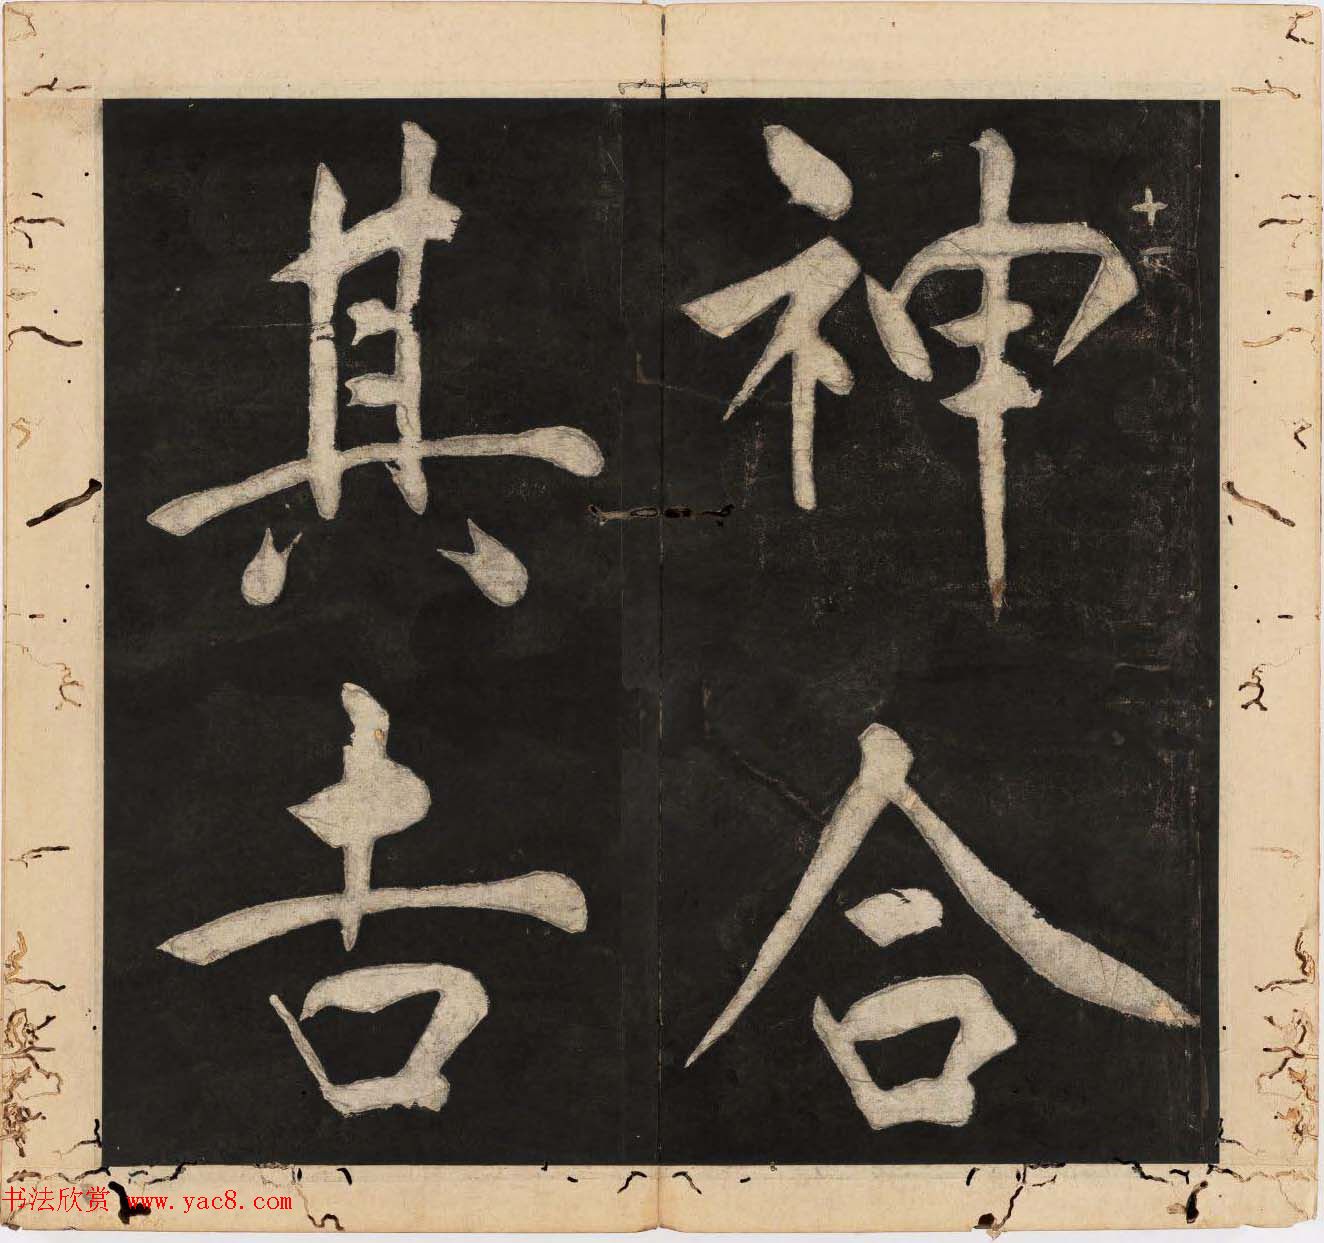 神合
其吉
十一
书法欣赏 www.yac8.com